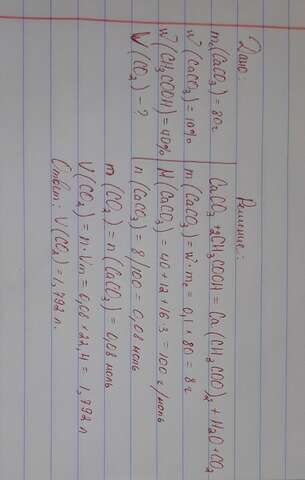 Дано:
m(CaCO₃) = 80г
W(CaCO₃) = 10%
W(CH₃COOH) = 40%
V(CO₂) - ?
Решение:
CaCO₃ + 2CH₃COOH = Ca(CH₃COO)₂ + H₂O + CO₂
m(CaCO₃) = W · mс = 0,1 × 80 = 8г
M(CaCO₃) = 40 + 12 + 16·3 = 100 г/моль
n(CaCO₃) = 8/100 = 0,08 моль
m(CO₂) = n(CaCO₃) = 0,08 моль
V(CO₂) = n · Vm = 0,08 × 22,4 = 1,792 л
Ответ: V(CO₂) = 1,792 л.